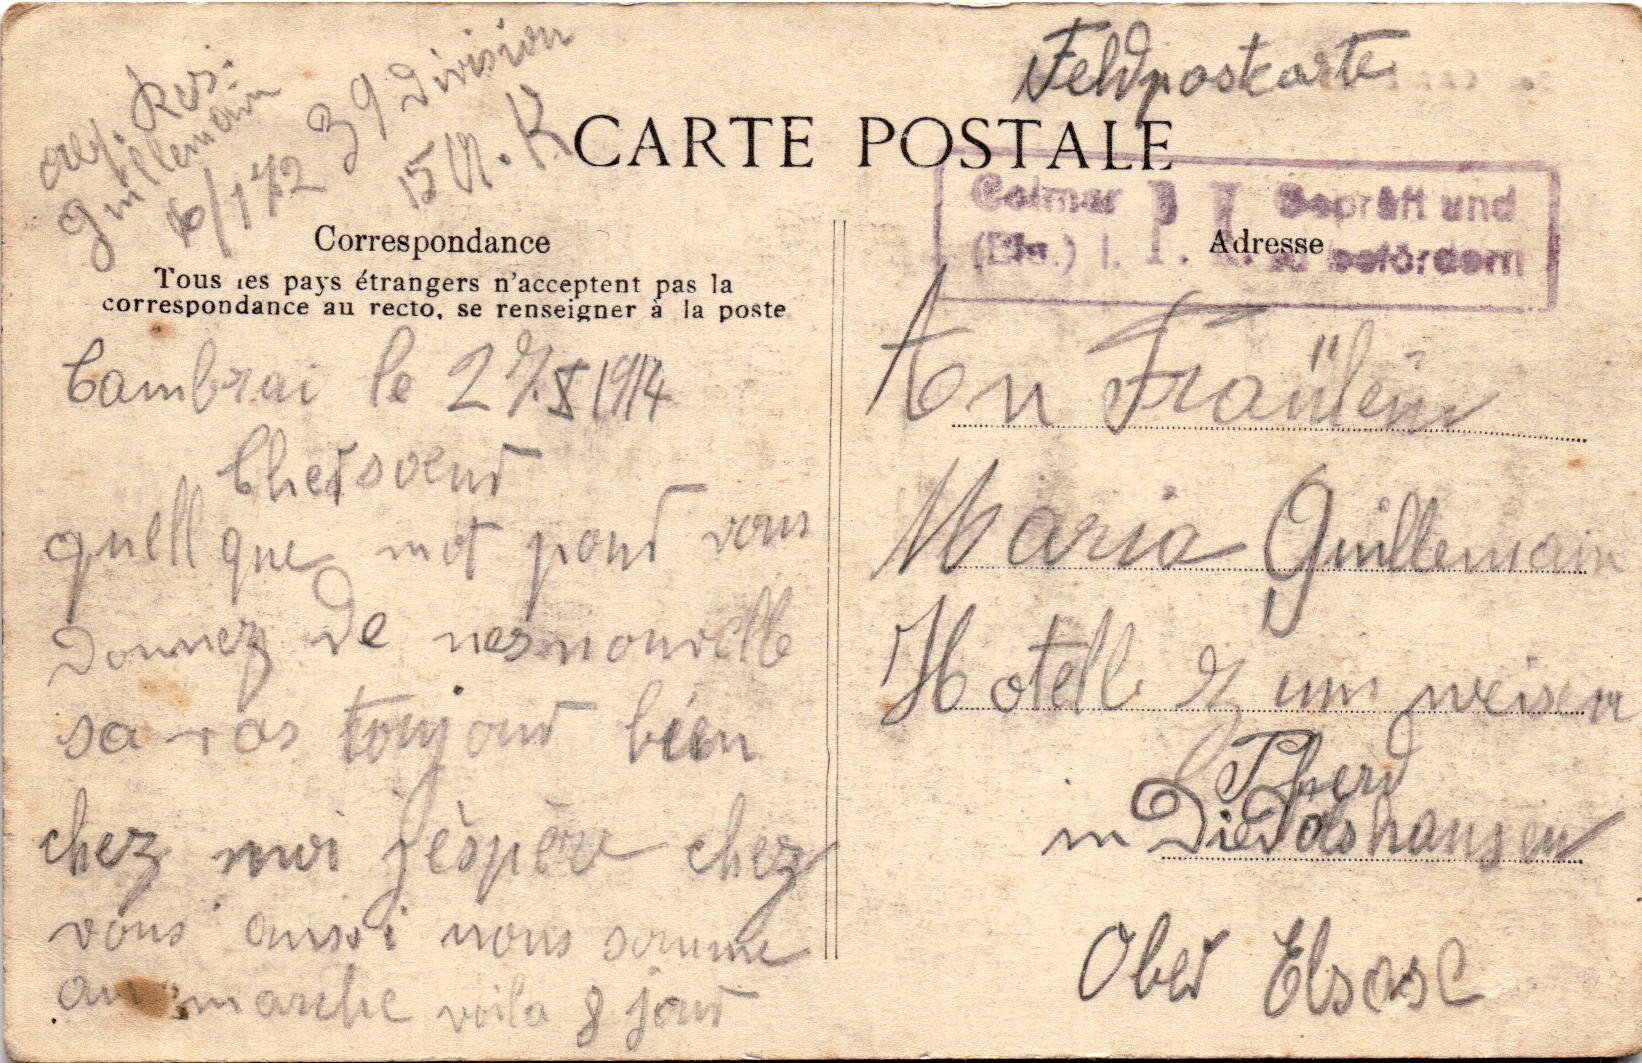 Feldpostkarte
Res.
Guillemain
6/172 39 Division
15 A. K
CARTE POSTALE
Colmar P. K. Geprüft und
(Els.) I. zu befördern
Correspondance
Tous les pays étrangers n'acceptent pas la
correspondance au recto, se renseigner à la poste
Cambrai le 27.X 1914
Cher soeur
quell que mot pour vous
Donnez de nes nouvelle
sa vas toujour bien
chez moi j'éspère chez
vous aussi nous somme
an marche voila 8 jour
Adresse
An Fraülein
Maria Guillemain
Hotell zum weisen
Pferd
in Diedolshausen
Ober Elsass